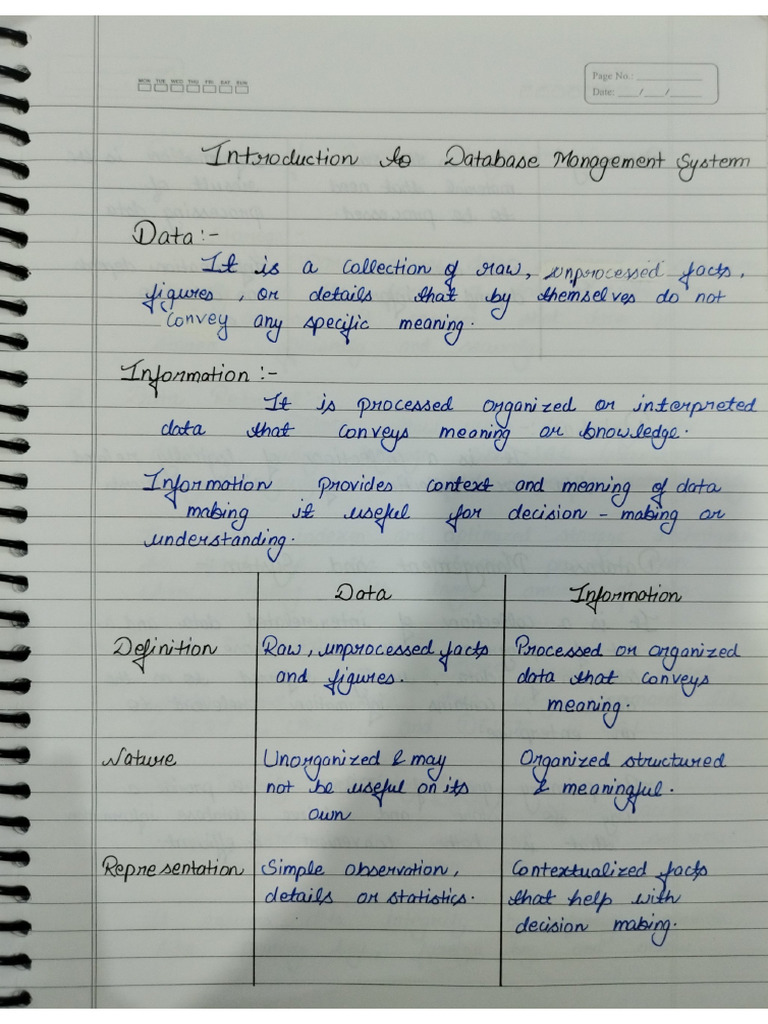 MON TUE WED THU FRI SAT SUN
Page No.:
Date: / /
Introduction to Database Management System
Data :-
It is a collection of raw, unprocessed facts,
figures, or details that by themselves do not
convey any specific meaning.
Information :-
It is processed organized or interpreted
data that conveys meaning or knowledge.
Information provides context and meaning of data
making it useful for decision-making or
understanding.
Data Information
Definition Raw, unprocessed facts Processed or organized
and figures. data that conveys
meaning.
Nature Unorganized & may Organized structured
not be useful on its & meaningful.
own
Representation Simple observation, Contextualized facts
details or statistics. that help with
decision making.